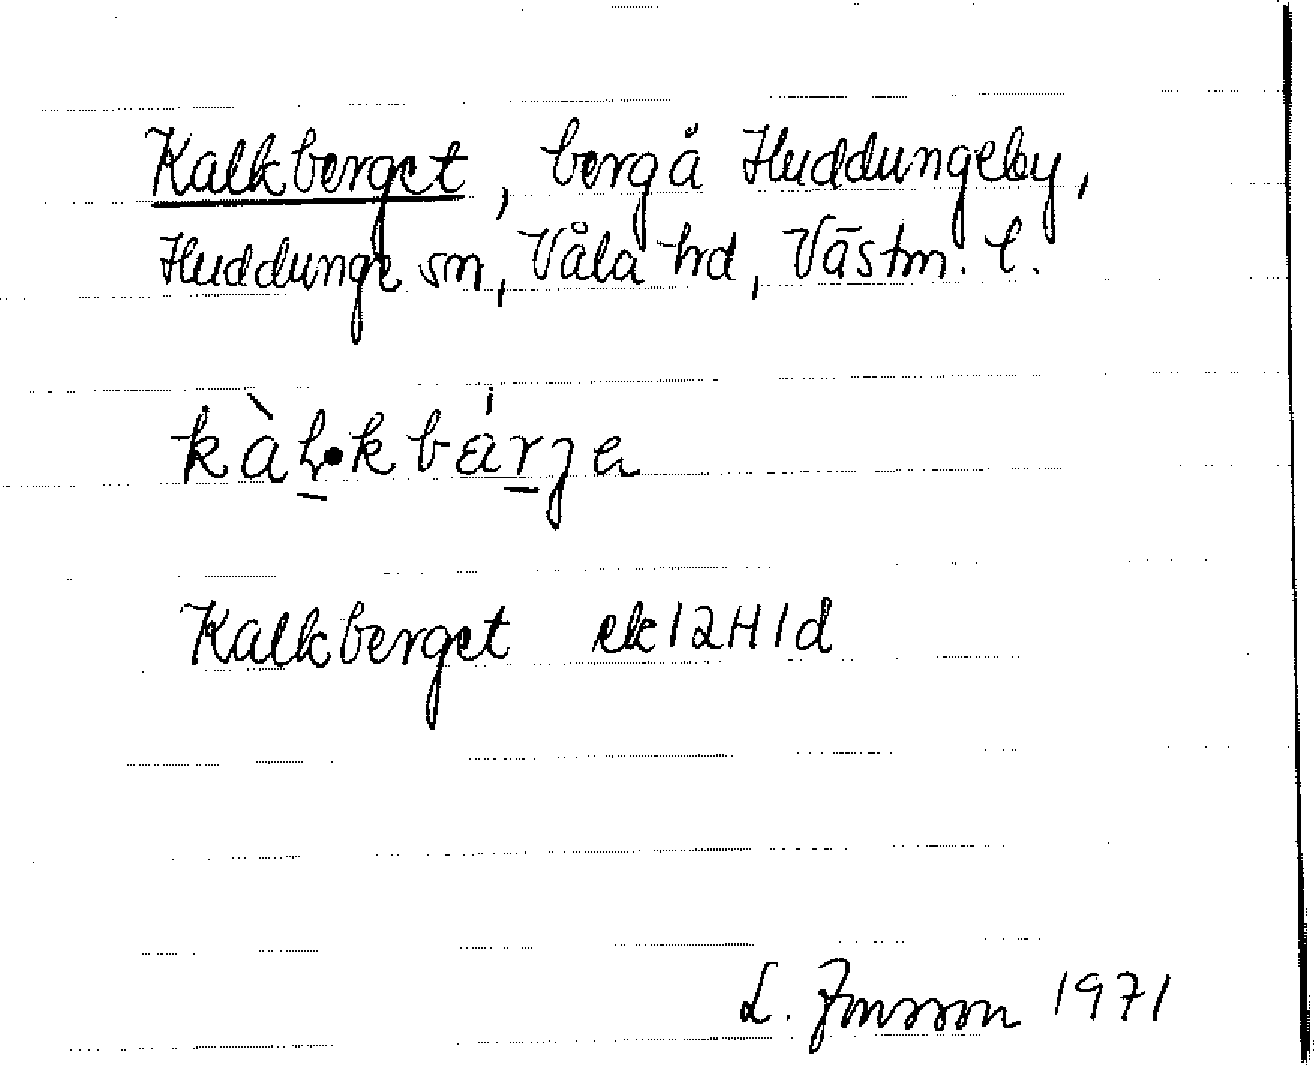 Kalkberget, berg å Huddungeby,
Huddunge sn, Våla hd, Västm. l.
kàl̠•kbárjẹ
Kalkberget ek 12H1d
L. Jonsson 1971